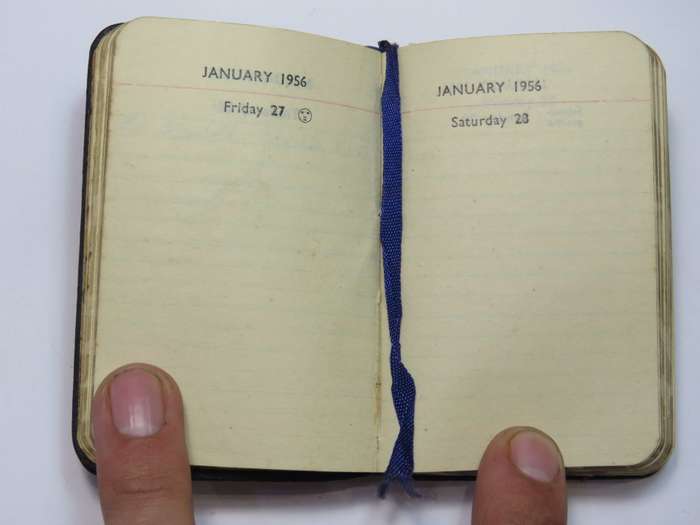 JANUARY 1956
Friday 27
JANUARY 1956
Saturday 28